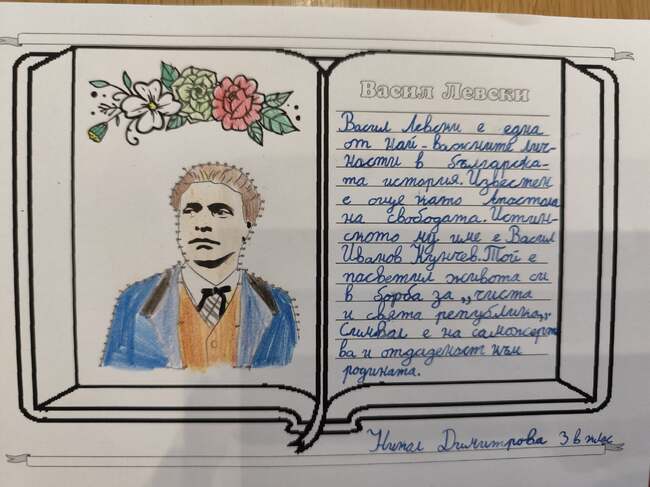 Васил Левски
Васил Левски е една
от най-важните лич-
ности в българска-
та история. Известен
е още като Апостола
на свободата. Истин-
ското му име е Васил
Иванов Кунчев. Той е
посветил живота си
в борба за „чиста
и свята република„.
Символ е на саможерт
ва и отдаденост към
родината.
Димитрова 3 в клас